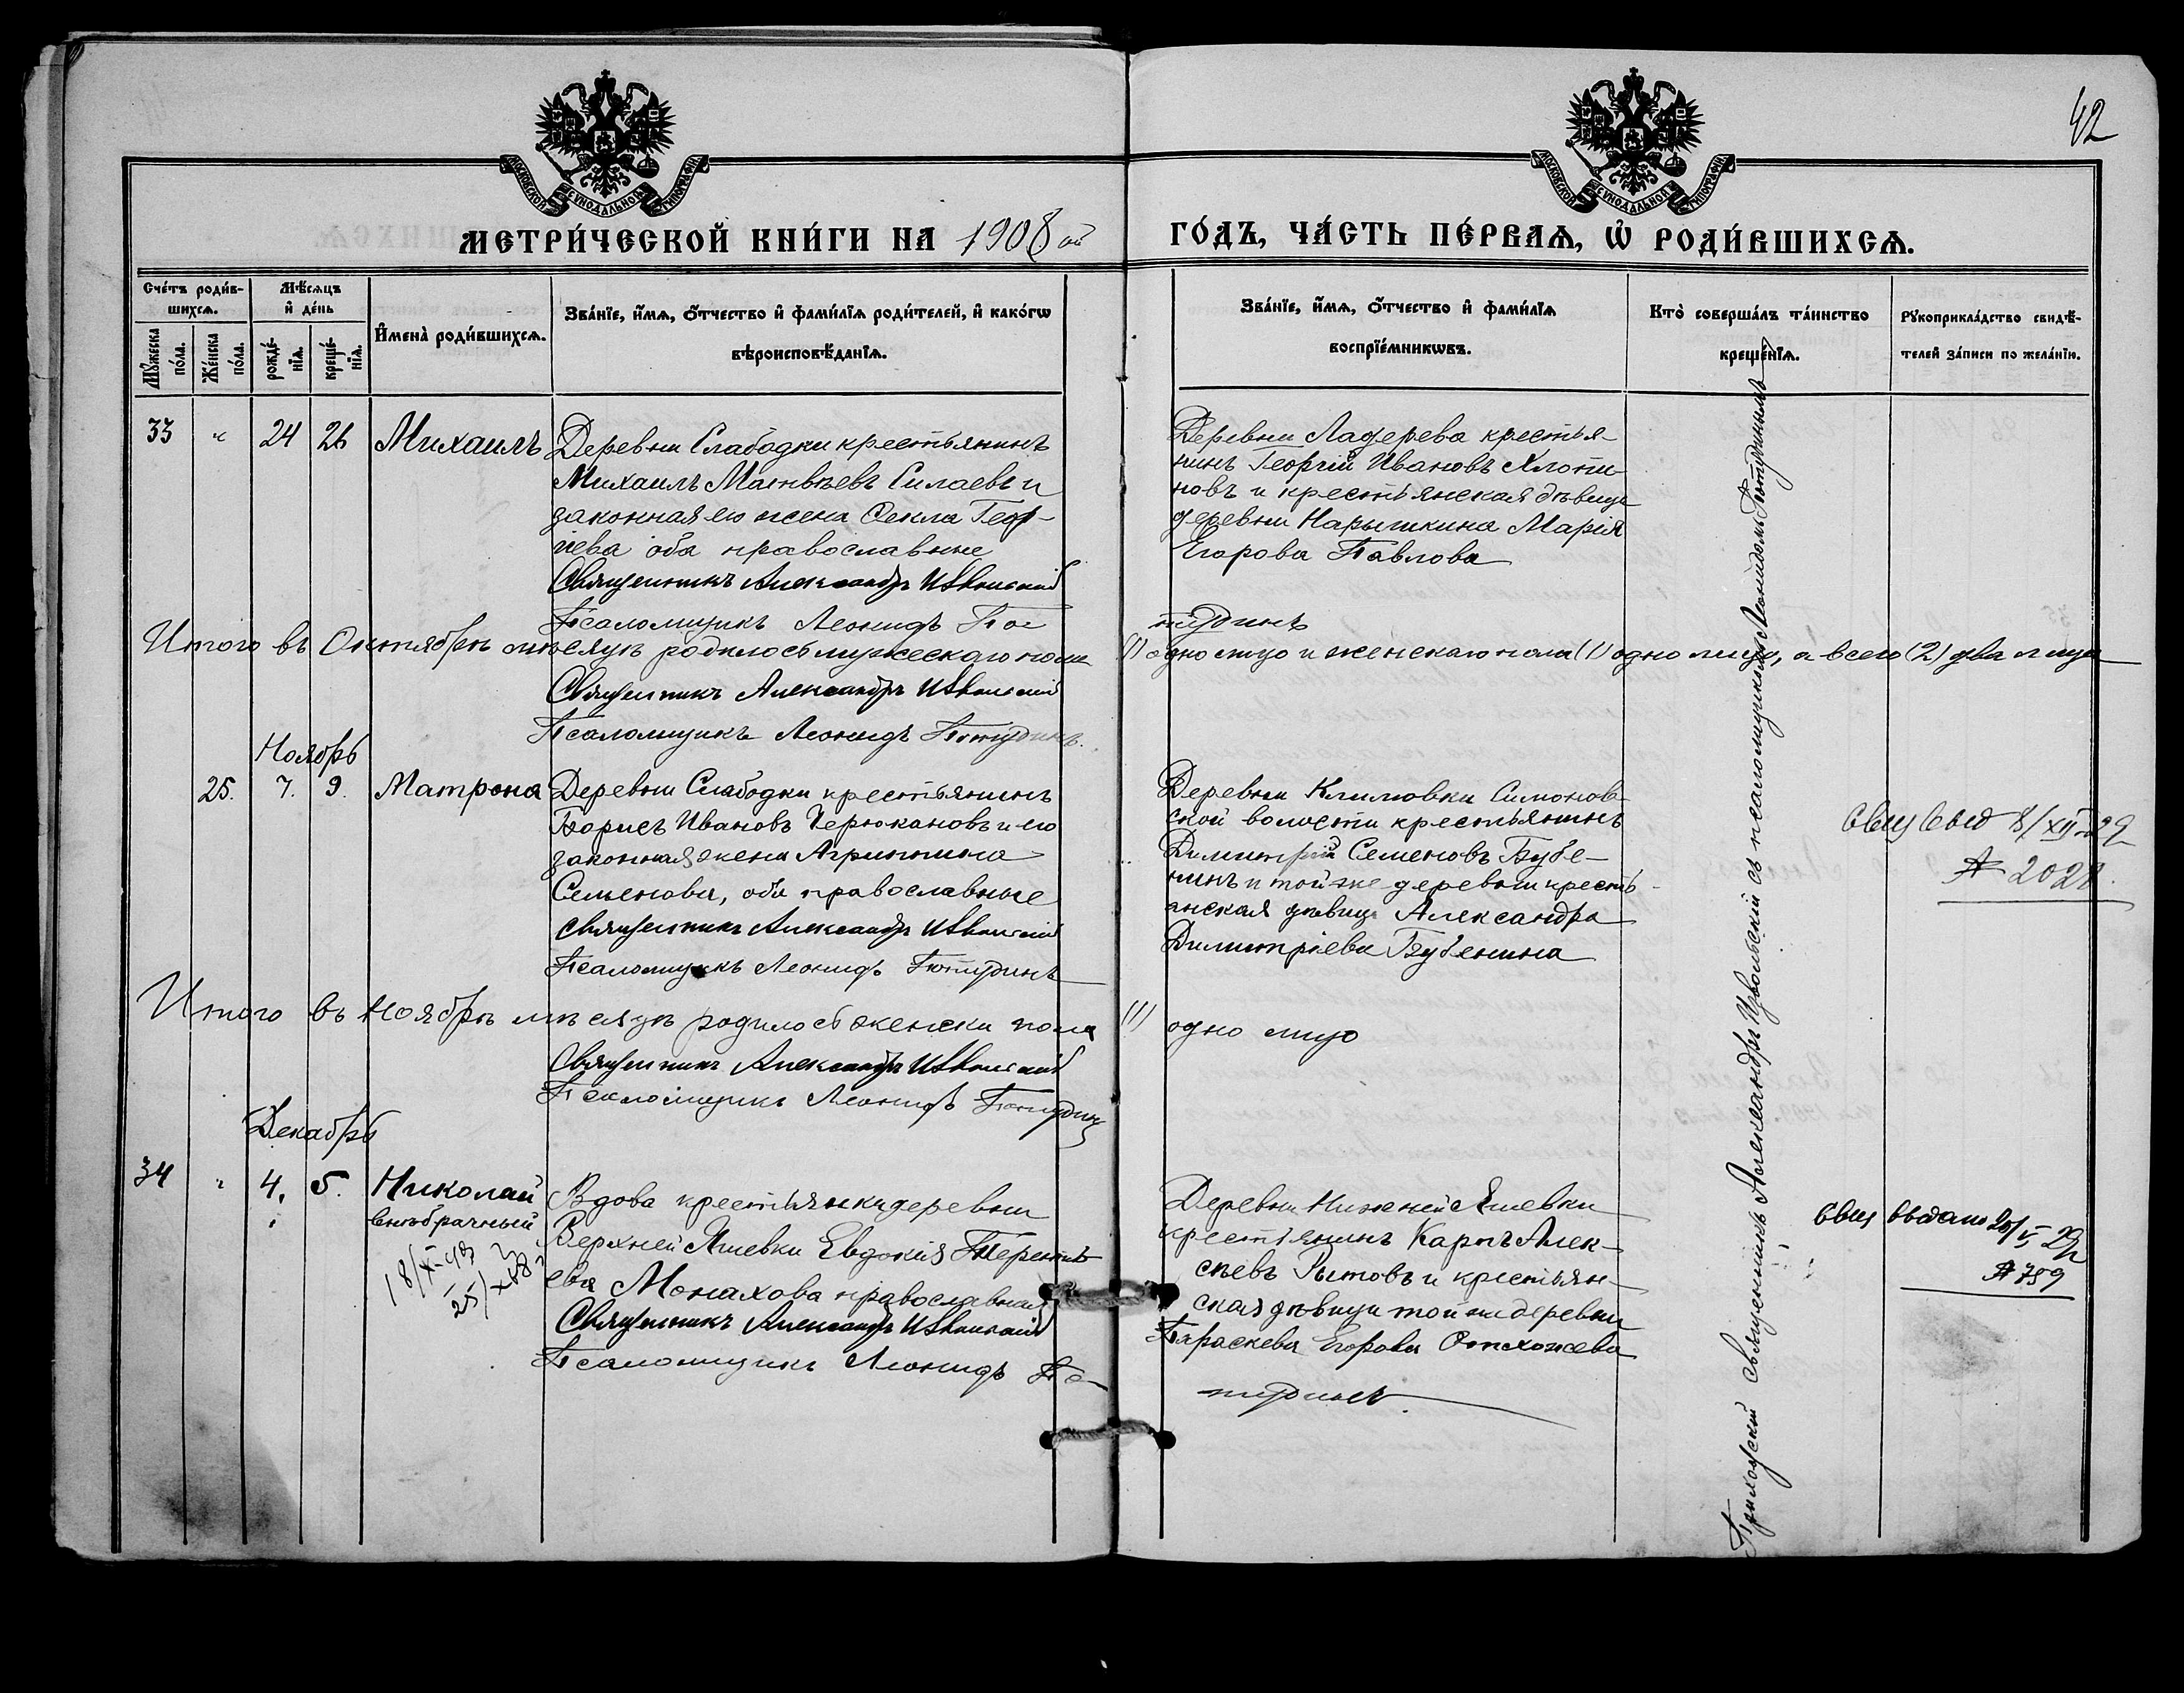 42
МОСКОВСКОЙ СѴНОДАЛЬНОЙ ТИПОГРАФІИ
МОСКОВСКОЙ СѴНОДАЛЬНОЙ ТИПОГРАФІИ
МЕТРИ́ЧЕСКОЙ КНИ́ГИ НА 1908 ой
ГО́ДЪ, ЧА́СТЬ ПЕ́РВАѦ, Ѡ҆ РОДИ́ВШИХСѦ.
Сче́тъ роди́в-
шихсѧ.
Мꙋ́жеска по́ла.
Же́нска по́ла.
Мѣ́сѧцъ
и҆ де́нь
рожде́-нїѧ.
креще́-нїѧ.
И҆мена̀ роди́вшихсѧ.
Зва́нїе, и҆́мѧ, ѻ҆́тчество и҆ фами́лїѧ роди́телей, и҆ како́гѡ
вѣроисповѣ́данїѧ.
Зва́нїе, и҆́мѧ, ѻ҆́тчество и҆ фами́лїѧ
воспрїе́мникѡвъ.
Кто̀ соверша́лъ та́инство
креще́нїѧ.
Рꙋкоприкла́дство свидѣ́-
телей за́писи по жела́нїю.
33 " 24 26 Михаилъ
Деревни Слабодки крестьянинъ
Михаилъ Матвѣевъ Силаевъ и
законная его жена Ѳекла Геор-
гіева оба православные
Священникъ Александръ Извольскій
Псаломщикъ Леонидъ По-
тудинъ
Деревни Ладерева крестья-
нинъ Георгій Ивановъ Хлопи-
новъ и крестьянская дѣвица
деревни Нарышкина Марія
Егорова Павлова
Итого въ Октябрѣ мѣсяцѣ родилось мужескаго пола (1) одно лицо и женскаго пола (1) одно лицо, а всего (2) два лица
Священникъ Александръ Извольскій
Псаломщикъ Леонидъ Потудинъ.
Ноябрь
25. 7. 9. Матрона
Деревни Слабодки крестьянинъ
Борисъ Ивановъ Черюкановъ и его
законная жена Агриппина
Семенова, оба православные
Священникъ Александръ Извольскій
Псаломщикъ Леонидъ Потудинъ
Деревни Климовки Симонов-
ской волости крестьянинъ
Димитрій Семеновъ Бубе-
нинъ и той же деревни кресть-
янская дѣвица Александра
Димитріева Бубенина
8/XII-29
№ 2028
Итого въ Ноябрѣ мѣсяцѣ родилось женска пола (1) одно лицо
Священникъ Александръ Извольскій
Псаломщикъ Леонидъ Потудинъ
Декабрь
34 " 4. 5. Николай
внѣбрачный
18/X-43
Вдова крестьянки деревни
Верхней Яшевки Евдокія Терентъ
ева Монахова православная
Священникъ Александръ Извольскій
Псаломщикъ Леонидъ По-
тудинъ.
Деревни Нижней Яшевки
крестьянинъ Карпъ Алек-
сѣевъ Рытовъ и крестьян-
ская дѣвица той же деревни
Параскева Егорова Отхожева
выдано
№ 759
Приходскій священникъ Александръ Извольскій съ псаломщикомъ Леонидомъ Потудинымъ